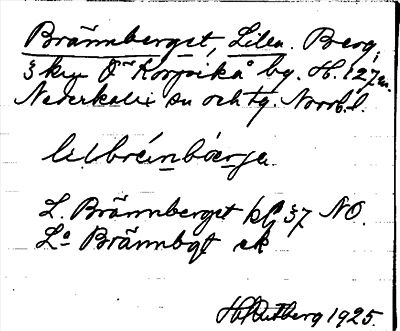 Brännberget, Lilla. Berg,
3 km Ö Korpikå by. H. 127 m.
Nederkalix sn och tg. Norrb. l.
lilbränbärje
L. Brännberget kG 37 NO.
La Brännbgt ek
1925.